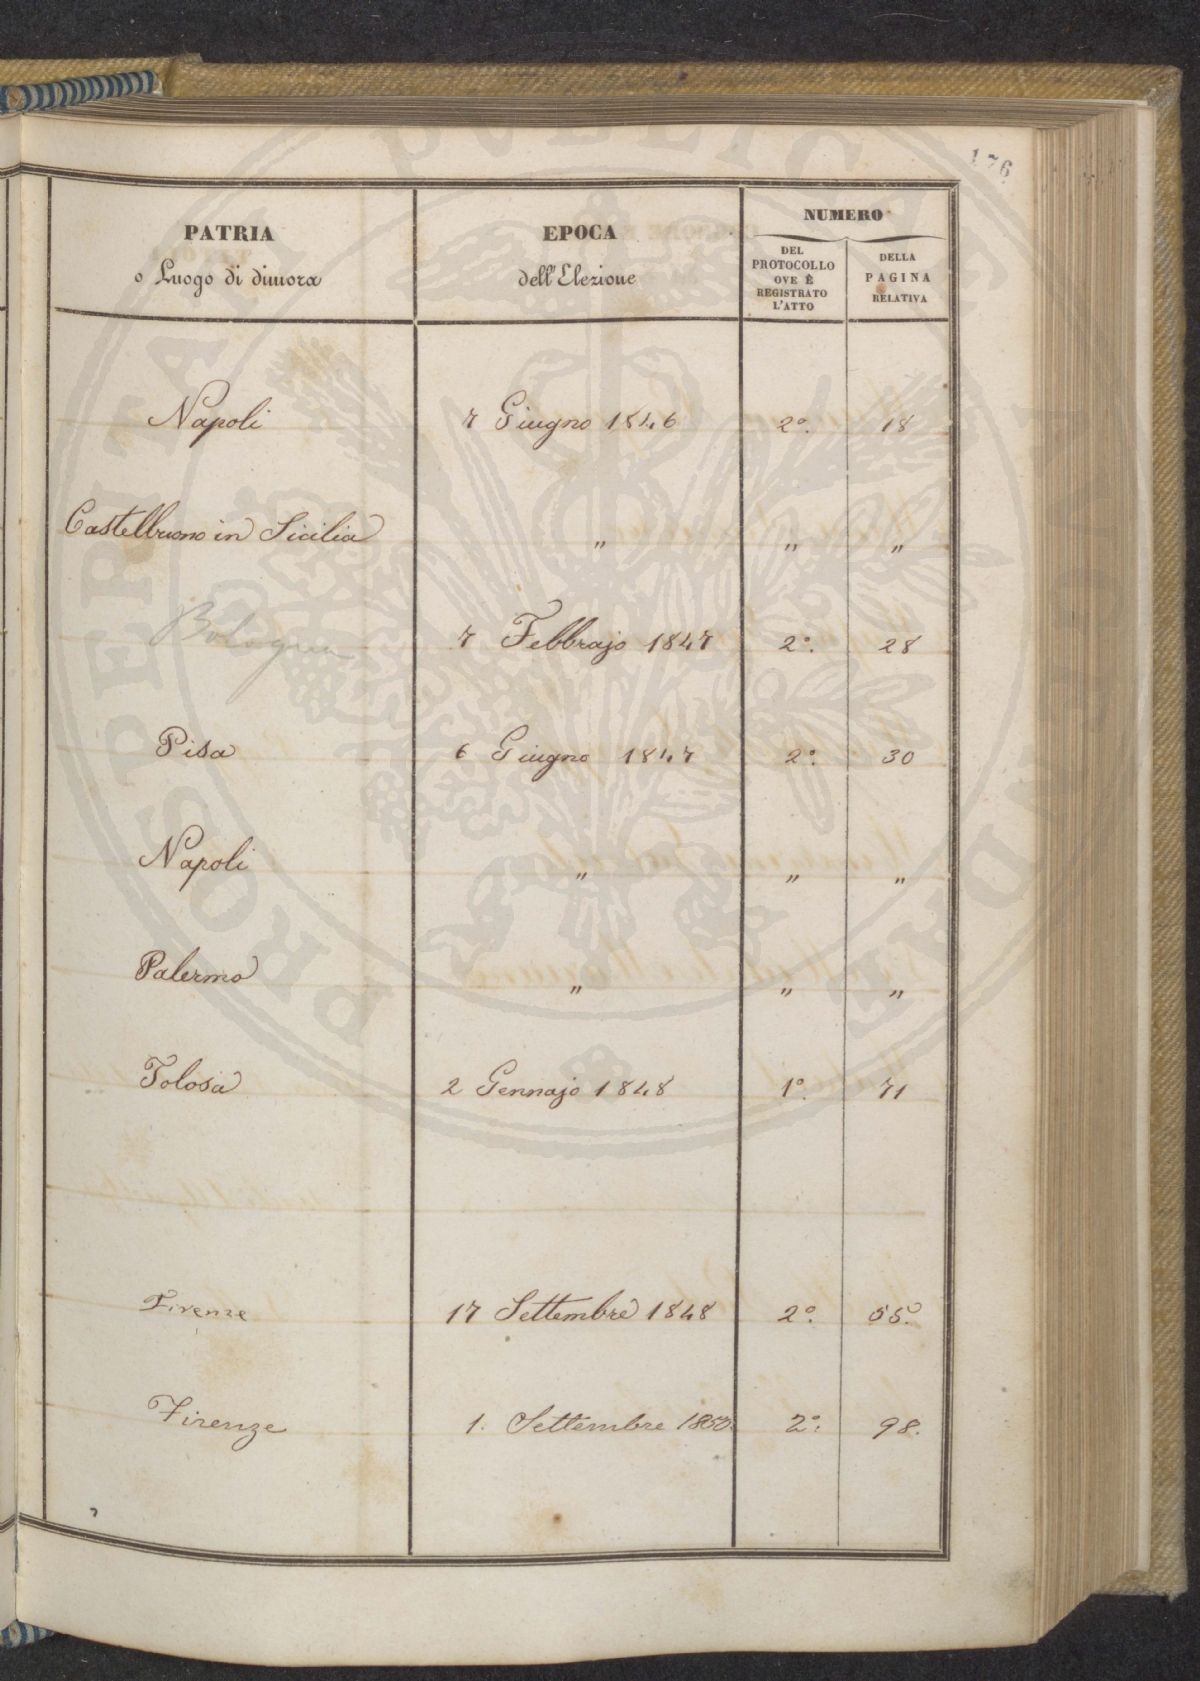 176
PATRIA
o Luogo di dimora
EPOCA
dell'Elezione
NUMERO
DEL
PROTOCOLLO
OVE È
REGISTRATO
L'ATTO
DELLA
PAGINA
RELATIVA
Napoli 7 Giugno 1846 2º. 18
Castelbuono in Sicilia " " "
Bologna 7 Febbrajo 1847 2º. 28
Pisa 6 Giugno 1847 2º. 30
Napoli " " "
Palermo " " "
Tolosa 2 Gennajo 1848 1º. 71
Firenze 17 Settembre 1848 2º. 55.
Firenze 1. Settembre 1850. 2º. 98.
PROSPERITATI PUBLICAE AUGENDAE